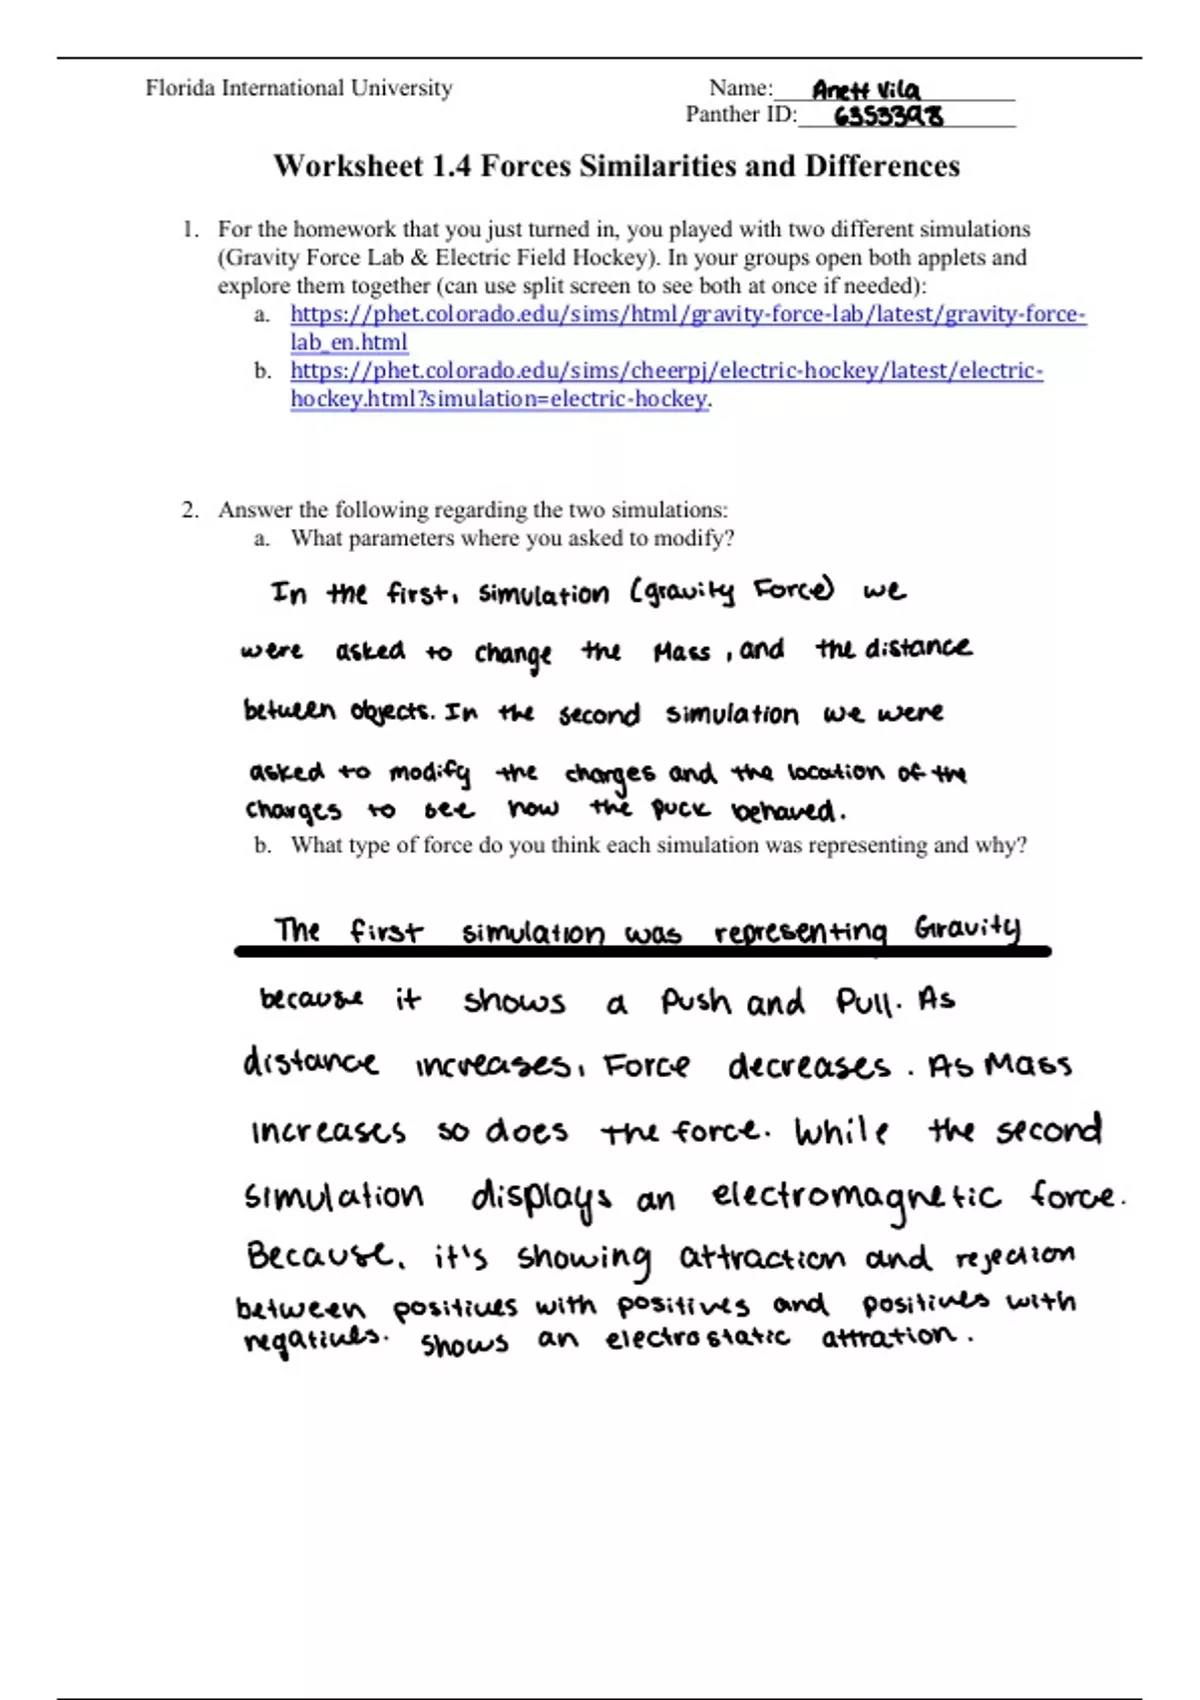 Florida International University Name: Anett Vila
Panther ID: 6353398
Worksheet 1.4 Forces Similarities and Differences
1. For the homework that you just turned in, you played with two different simulations
(Gravity Force Lab & Electric Field Hockey). In your groups open both applets and
explore them together (can use split screen to see both at once if needed):
a. https://phet.colorado.edu/sims/html/gravity-force-lab/latest/gravity-force-
lab_en.html
b. https://phet.colorado.edu/sims/cheerpj/electric-hockey/latest/electric-
hockey.html?simulation=electric-hockey.
2. Answer the following regarding the two simulations:
a. What parameters where you asked to modify?
In the first, simulation (gravity Force) we
were asked to change the Mass, and the distance
between objects. In the second simulation we were
asked to modify the charges and the location of the
charges to see how the puck behaved.
b. What type of force do you think each simulation was representing and why?
The first simulation was representing Gravity
because it shows a Push and Pull. As
distance increases, Force decreases. As Mass
increases so does the force. While the second
simulation displays an electromagnetic force.
Because, it's showing attraction and rejection
between positives with positives and positives with
negatives. Shows an electrostatic attration.